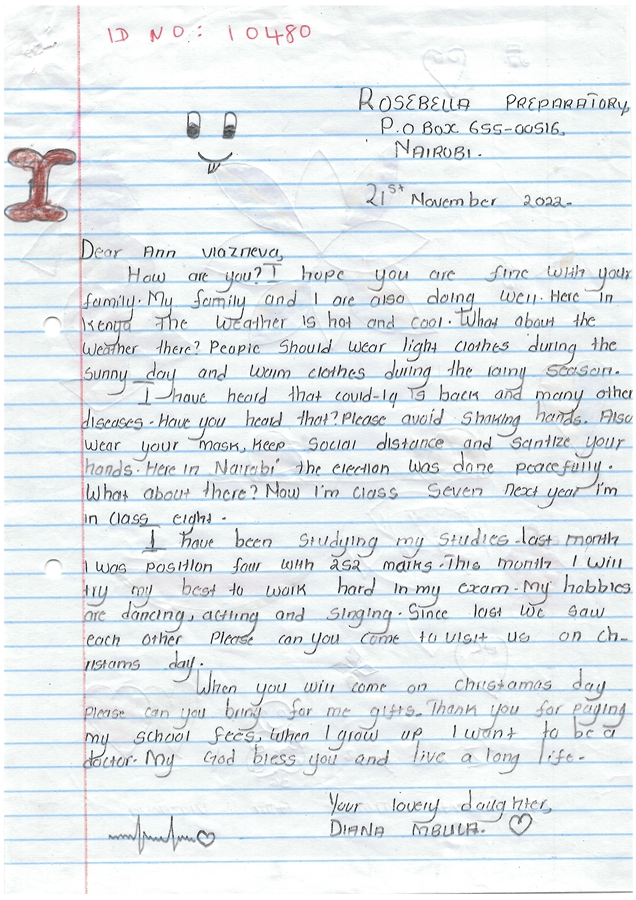 ID NO: 10480
ROSEBELLA PREPARATORY,
P.O BOX 655-00516,
NAIROBI.
21st November 2022.
Dear Ann Viazneva,
How are you? I hope you are fine with your
family. My family and I are also doing well. Here in
Kenya the weather is hot and cool. What about the
weather there? People should wear light clothes during the
sunny day and warm clothes during the rainy season.
I have heard that covid-19 is back and many other
diseases. Have you heard that? Please avoid shaking hands. Also
wear your mask, keep social distance and santize your
hands. Here in Nairobi the election was done peacefully.
What about there? Now I'm class seven next year I'm
in class eight.
I have been studying my studies. last month
I was position four with 252 marks. This month I will
try my best to work hard in my exam. My hobbies
are dancing, acting and singing. Since last we saw
each other please can you come to visit us on ch-
ristams day.
When you will come on christamas day
please can you bring for me gifts. Thank you for paying
my school fees. When I grow up I want to be a
doctor. My God bless you and live a long life.
Your lovely daughter,
DIANA MBULA.